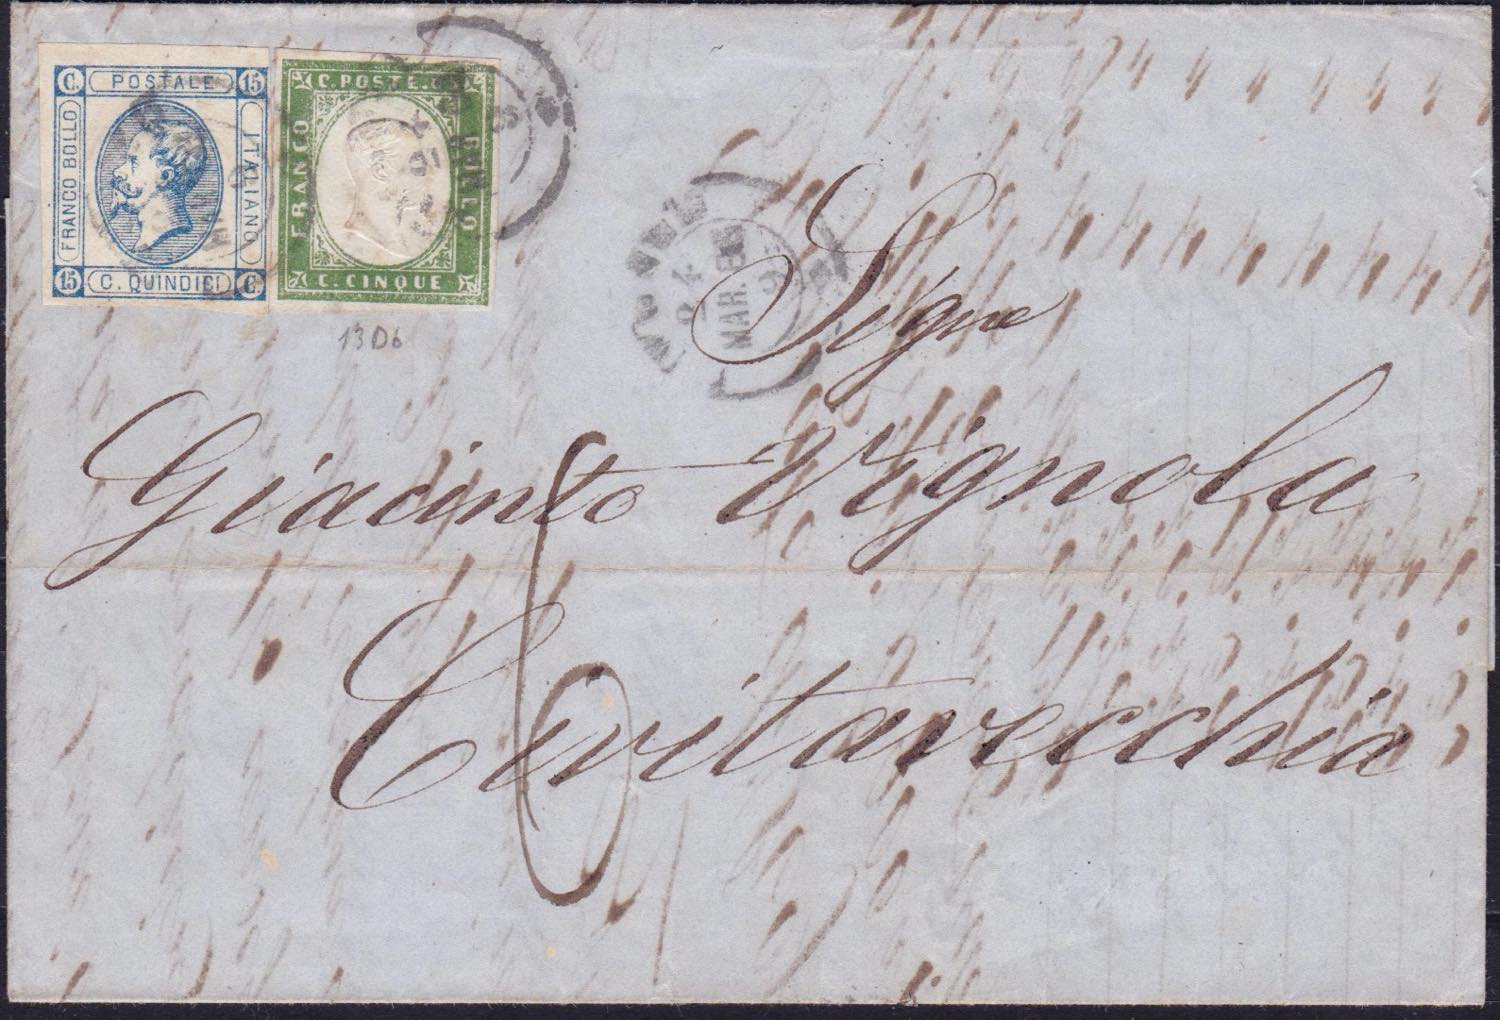 C. POSTALE 15
FRANCO BOLLO
ITALIANO
15 C. QUINDICI C.
C. POSTE
FRANCO
BOLLO
C. CINQUE
13D6
24
MAR. 63
Sigre
Giacinto Vignola
Civitavecchia